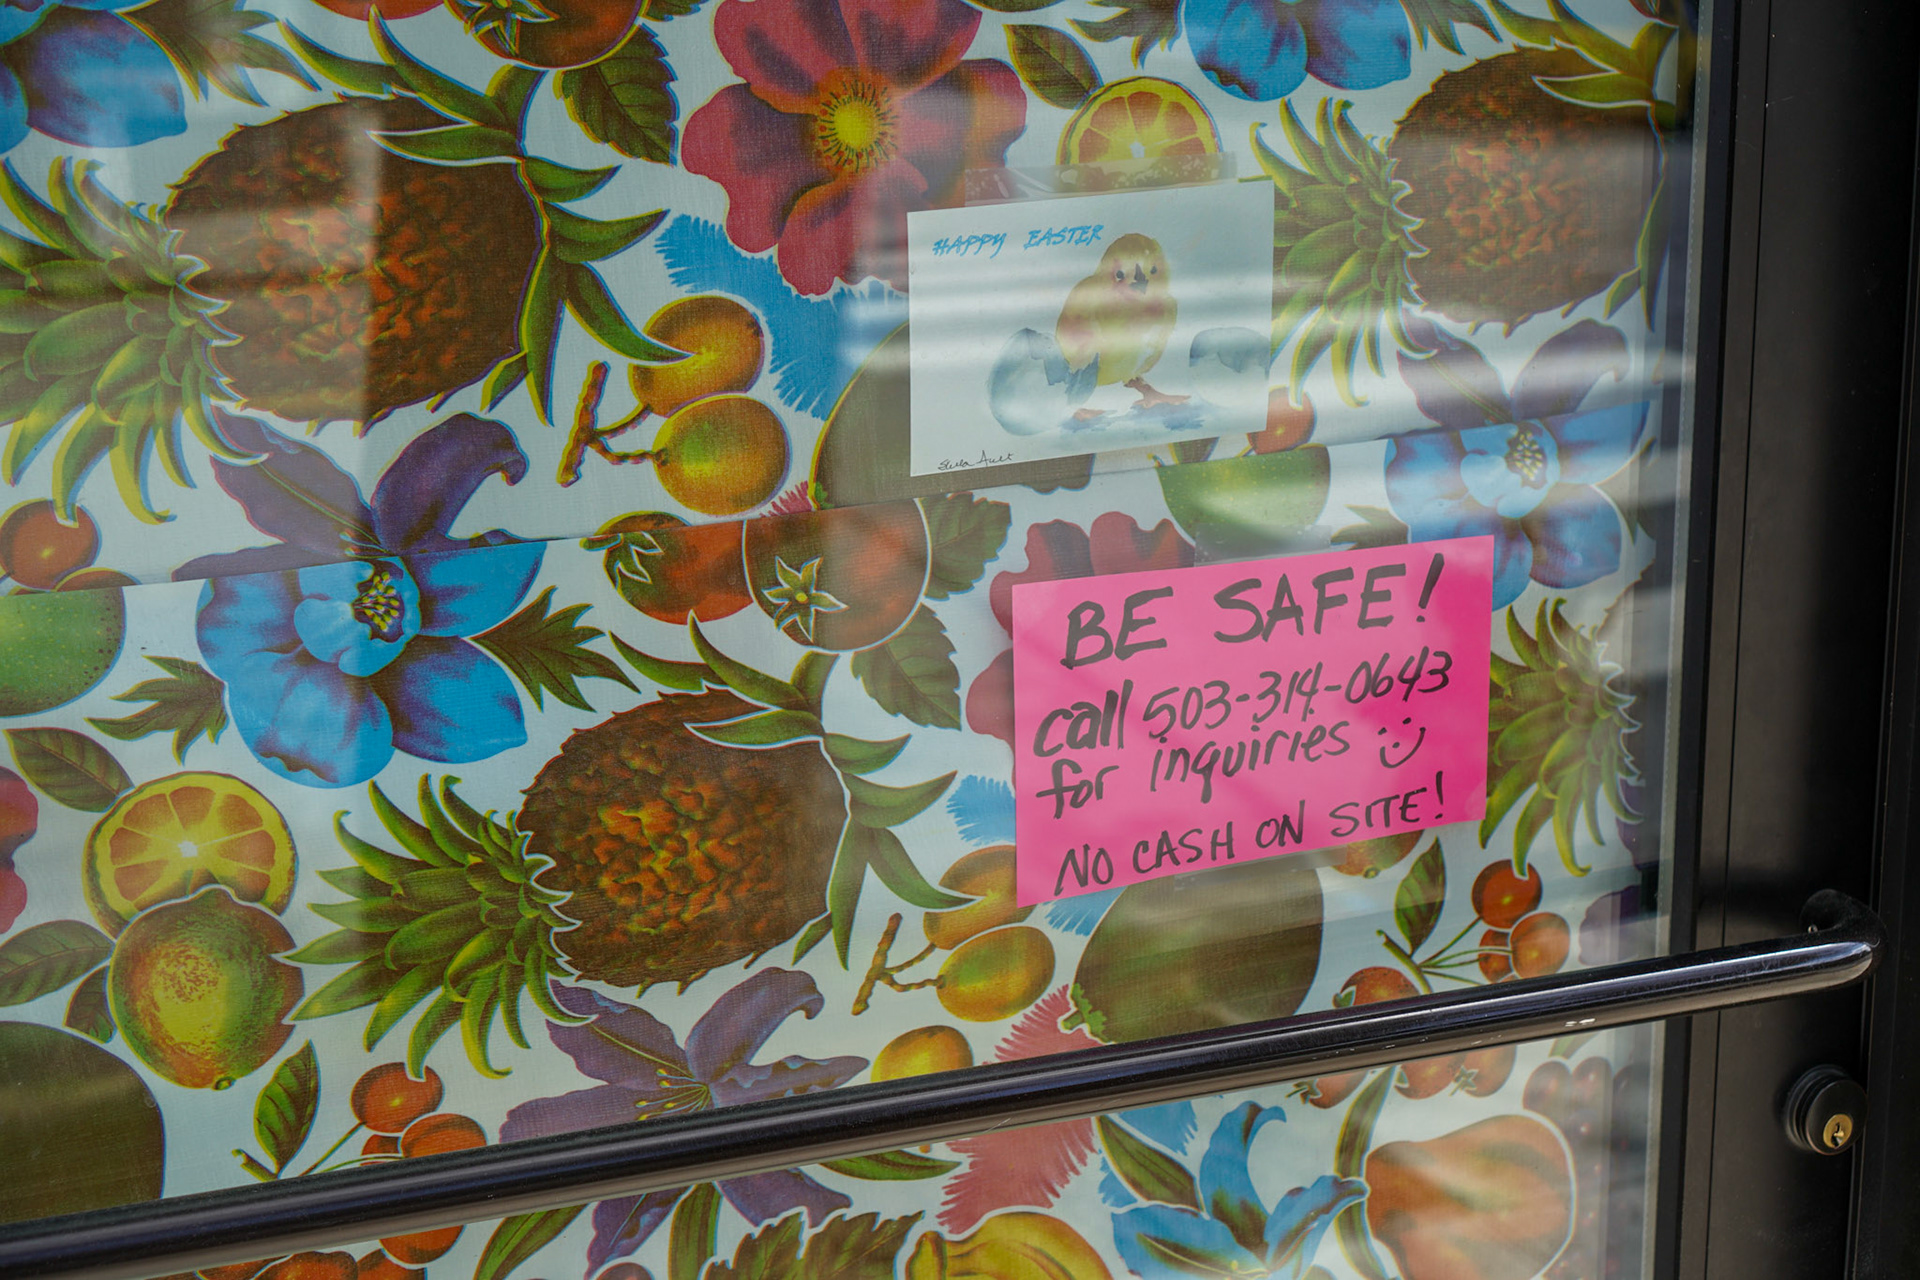 HAPPY EASTER
BE SAFE!
call 503-314-0643
for inquiries
NO CASH ON SITE!